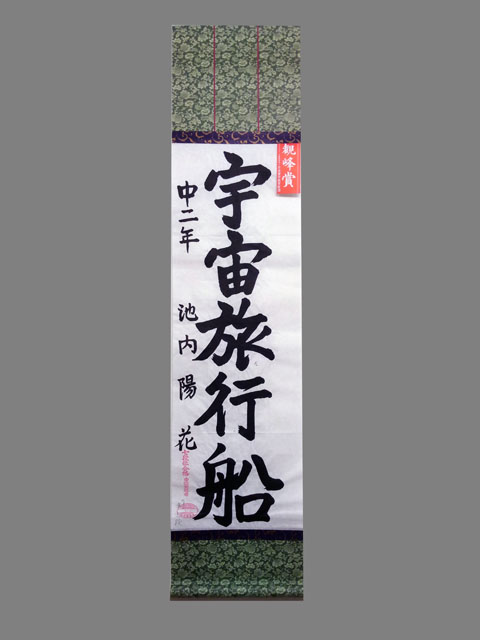 観峰賞
宇宙旅行船
中二年 池内陽花